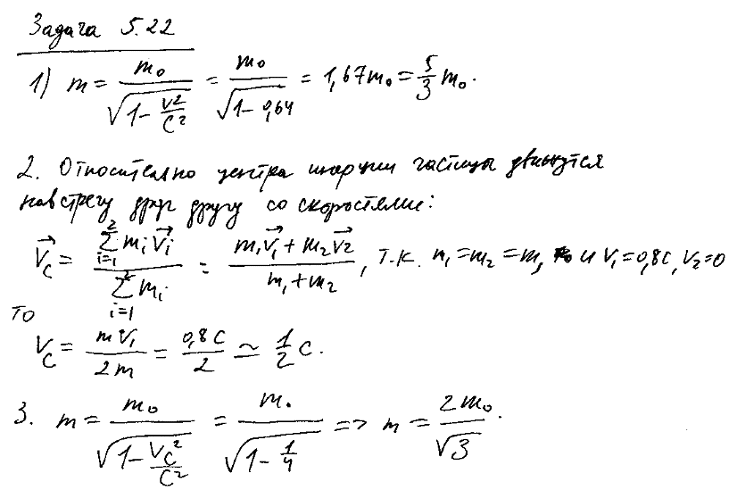 Задача 5.22
1) m = m₀/√(1 - v²/c²) = m₀/√(1 - 0,64) = 1,67m₀ = 5/3 m₀.
2. Относительно центра инерции частицы движутся
навстречу друг другу со скоростями:
V⃗_c = (∑_{i=1}^{2} m_i V⃗_i)/(∑_{i=1}^{2} m_i) = (m₁V⃗₁ + m₂V⃗₂)/(m₁ + m₂), т.к. m₁ = m₂ = m, и V₁ = 0,8c, V₂ = 0
то
V_c = mV₁/2m = 0,8c/2 ≃ 1/2 c.
3. m = m₀/√(1 - V_c²/c²) = m₀/√(1 - 1/4) => m = 2m₀/√3.